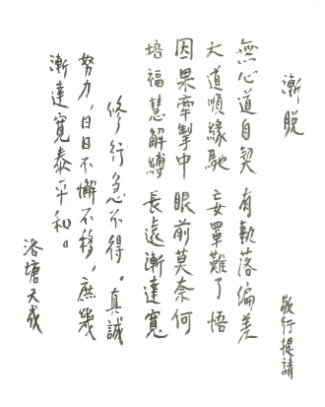 漸脫
敬行提請
無心道自契 有執落偏差
大道順緣馳 妄罣難了悟
因果牽掣中 眼前莫奈何
培福慧解縛 長遠漸達寬
修行急不得。真誠
努力,日日不懈不移,庶幾
漸達寬泰平和。
浴塘天成